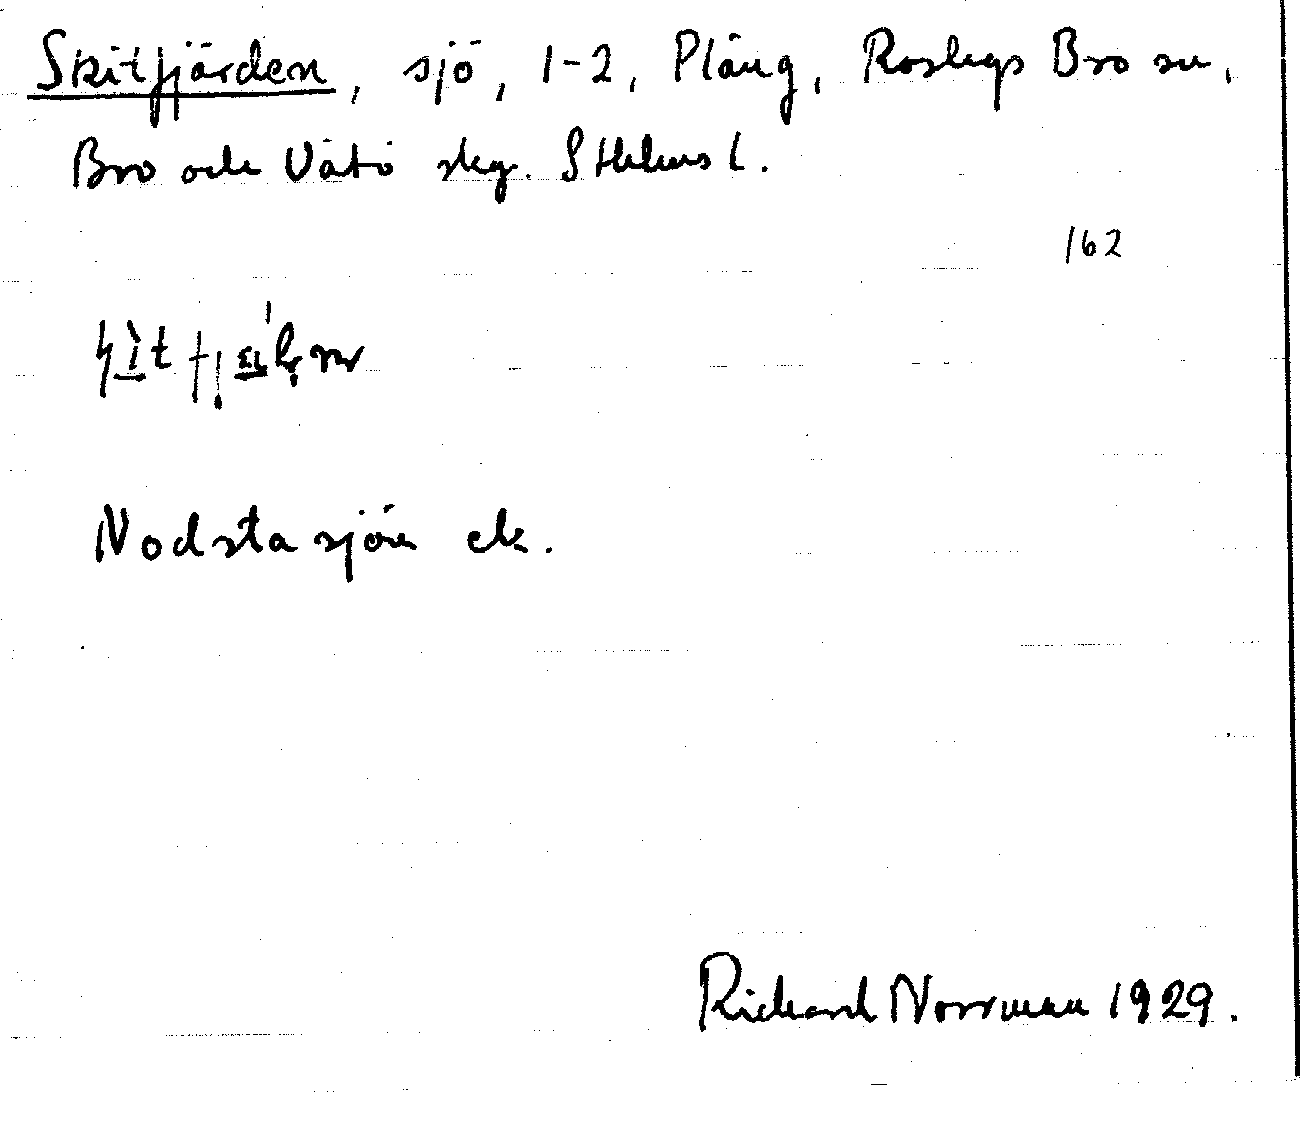 Skitfjärden, sjö, 1-2, Pläng, Roslags Bro sn,
Bro och Vätö skg. Sthlms l.
162
Nodstasjön ek.
Richard Norrman 1929.